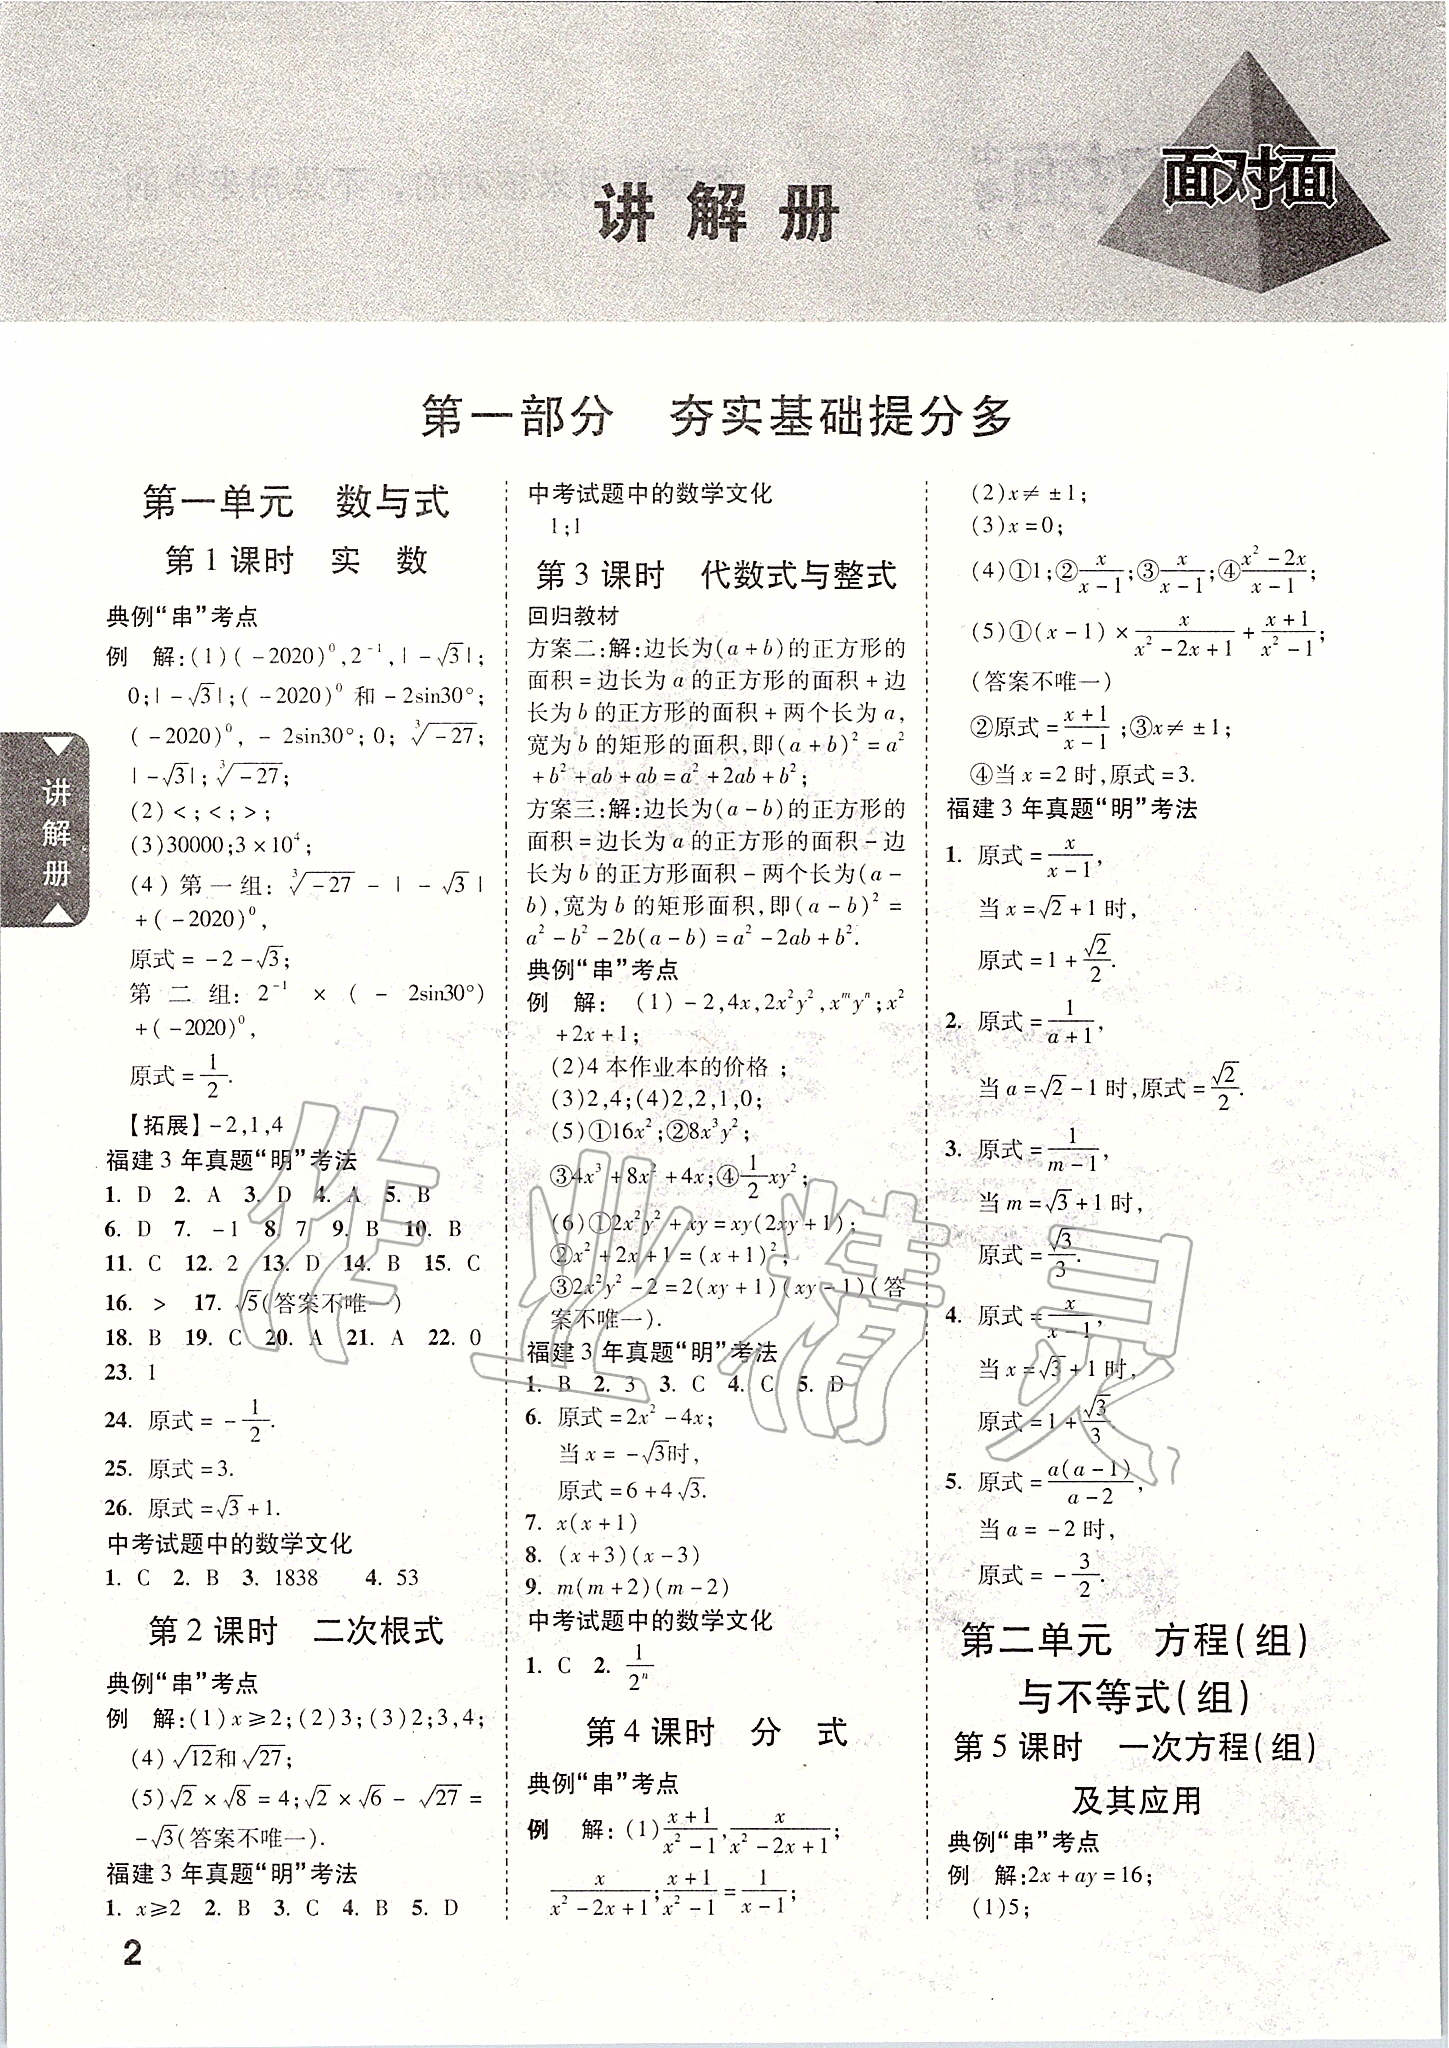 面对面
讲解册
第一部分 夯实基础提分多
讲解册
第一单元 数与式
第1课时 实 数
典例“串”考点
例 解:(1)(-2020)⁰,2⁻¹,|-√3|;
0;|-√3|;(-2020)⁰和-2sin30°;
(-2020)⁰,-2sin30°;0;∛-27;
|-√3|;∛-27;
(2)<;<;>;
(3)30000;3×10⁴;
(4)第一组:∛-27-|-√3|
+(-2020)⁰,
原式=-2-√3;
第二组:2⁻¹×(-2sin30°)
+(-2020)⁰,
原式=1/2.
【拓展】-2,1,4
福建3年真题“明”考法
1. D 2. A 3. D 4. A 5. B
6. D 7. -1 8. 7 9. B 10. B
11. C 12. 2 13. D 14. B 15. C
16. > 17. √5(答案不唯一)
18. B 19. C 20. A 21. A 22. 0
23. 1
24. 原式=-1/2.
25. 原式=3.
26. 原式=√3+1.
中考试题中的数学文化
1. C 2. B 3. 1838 4. 53
第2课时 二次根式
典例“串”考点
例 解:(1)x≥2;(2)3;(3)2;3,4;
(4)√12和√27;
(5)√2×√8=4;√2×√6-√27=
-√3(答案不唯一).
福建3年真题“明”考法
1. x≥2 2. B 3. C 4. B 5. D
中考试题中的数学文化
1;1
第3课时 代数式与整式
回归教材
方案二:解:边长为(a+b)的正方形的
面积=边长为a的正方形的面积+边
长为b的正方形的面积+两个长为a,
宽为b的矩形的面积,即(a+b)²=a²
+b²+ab+ab=a²+2ab+b²;
方案三:解:边长为(a-b)的正方形的
面积=边长为a的正方形的面积-边
长为b的正方形面积-两个长为(a-
b),宽为b的矩形面积,即(a-b)²=
a²-b²-2b(a-b)=a²-2ab+b².
典例“串”考点
例 解:(1)-2,4x,2x²y²,xᵐyⁿ;x²
+2x+1;
(2)4本作业本的价格;
(3)2,4;(4)2,2,1,0;
(5)①16x²;②8x³y²;
③4x³+8x²+4x;④1/2xy²;
(6)①2x²y²+xy=xy(2xy+1);
②x²+2x+1=(x+1)²;
③2x²y²-2=2(xy+1)(xy-1)(答
案不唯一).
福建3年真题“明”考法
1. B 2. 3 3. C 4. C 5. D
6. 原式=2x²-4x;
当x=-√3时,
原式=6+4√3.
7. x(x+1)
8. (x+3)(x-3)
9. m(m+2)(m-2)
中考试题中的数学文化
1. C 2. 1/2ⁿ
第4课时 分 式
典例“串”考点
例 解:(1)(x+1)/(x²-1),x/(x²-2x+1);
x/(x²-2x+1);(x+1)/(x²-1)=1/(x-1);
(2)x≠±1;
(3)x=0;
(4)①1;②x/(x-1);③x/(x-1);④(x²-2x)/(x-1);
(5)①(x-1)×x/(x²-2x+1)+(x+1)/(x²-1);
(答案不唯一)
②原式=(x+1)/(x-1);③x≠±1;
④当x=2时,原式=3.
福建3年真题“明”考法
1. 原式=x/(x-1),
当x=√2+1时,
原式=1+√2/2.
2. 原式=1/(a+1),
当a=√2-1时,原式=√2/2.
3. 原式=1/(m-1),
当m=√3+1时,
原式=√3/3.
4. 原式=x/(x-1),
当x=√3+1时,
原式=1+√3/3.
5. 原式=a(a-1)/(a-2),
当a=-2时,
原式=-3/2.
第二单元 方程(组)
与不等式(组)
第5课时 一次方程(组)
及其应用
典例“串”考点
例 解:2x+ay=16;
(1)5;
2
作业精灵